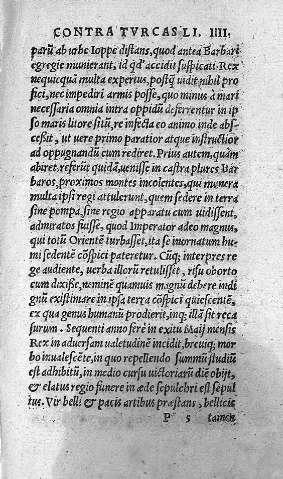 CONTRA TVRCAS LI. IIII.
parũ ab urbe Ioppe distans, quod antea Barbari
egregie munierant, id qd' accidit suspicati. Rex
nequicquã multa expertus, postq̃ uidit nihil pro
fici, nec impediri armis posse, quo minus à mari
necessaria omnia intra oppidũ deferrentur in ip
so maris litore sitũ, re infecta eo animo inde abs
cessit, ut uere primo paratior atque instructior
ad oppugnandũ cum rediret. Prius autem, quàm
abiret, referũt quidã, uenisse in castra plures Bar
baros, proximos montes incolentes, qui munera
multa ipsi regi attulerunt, quem sedere in terra
sine pompa, sine regio apparatu cum uidissent,
admiratos fuisse, quod Imperator adeo magnus,
qui totũ Orientẽ turbasset, ita se inornatum hu
mi sedentẽ cõspici pateretur. Cũq; interpres re
ge audiente, uerba illorũ retulisset, risu oborto
cum dixisse, neminẽ quamuis magnũ debere indi
gnũ existimare in ipsa terra cõspici quiescentẽ,
ex qua genus humanũ prodierit, inq; illã sit reca
surum. Sequenti anno fere in exitu Maij mensis
Rex in aduersam ualetudinẽ incidit, breuiq; mor
bo inualescẽte, in quo repellendo summũ studiũ
est adhibitũ, in medio cursu uictoriarũ diẽ obijt,
& elatus regio funere in æde sepulchri est sepul
tus. Vir belli & pacis artibus præstans, bellicis
P 5 tamen